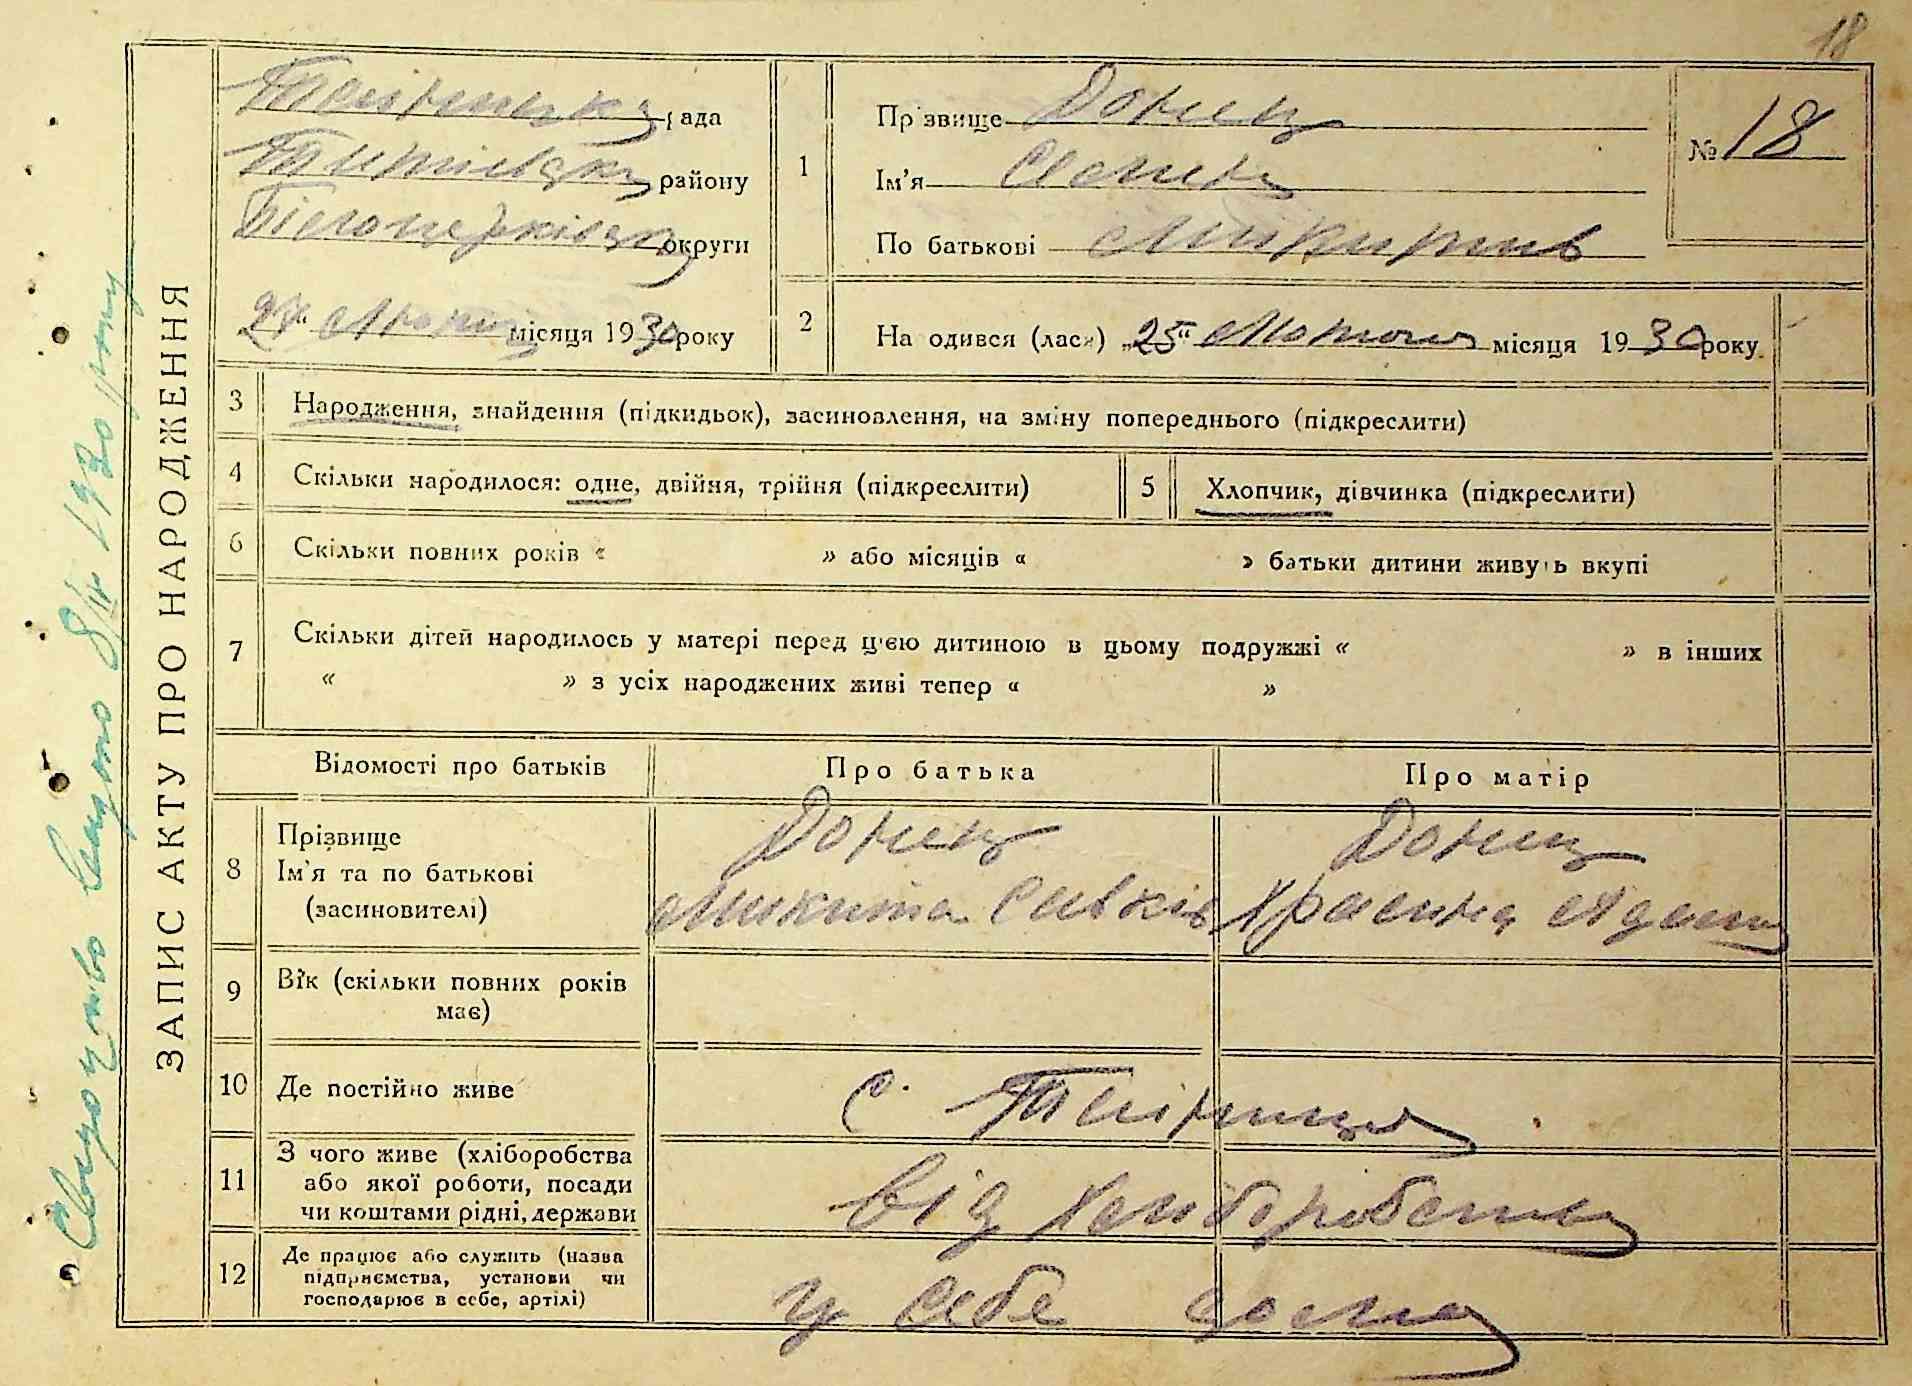 18
ЗАПИС АКТУ ПРО НАРОДЖЕННЯ
рада
району
Білоцерківської округи
27 Лютого місяця 1930 року
1
Прізвище Донец
Ім'я
По батькові Микитив
№ 18
2
На одився (лася) „25" Лютого місяця 1930 року.
3
Народження, знайдення (підкидьок), засиновлення, на зміну попереднього (підкреслити)
4
Скільки народилося: одне, двійня, трійня (підкреслити)
5
Хлопчик, дівчинка (підкреслити)
6
Скільки повних років « » або місяців « » батьки дитини живуть вкупі
7
Скільки дітей народилось у матері перед цією дитиною в цьому подружжі « » в інших
« » з усіх народжених живі тепер « »
Відомості про батьків
Про батька
Про матір
8
Прізвище
Ім'я та по батькові
(засиновителі)
Донец
Микита Савків
Донец
9
Вік (скільки повних років
має)
10
Де постійно живе
с.
11
З чого живе (хліборобства
або якої роботи, посади
чи коштами рідні, держави
від
12
Де працює або служить (назва
підприємства, установи чи
господарює в себе, артілі)
у себе дома